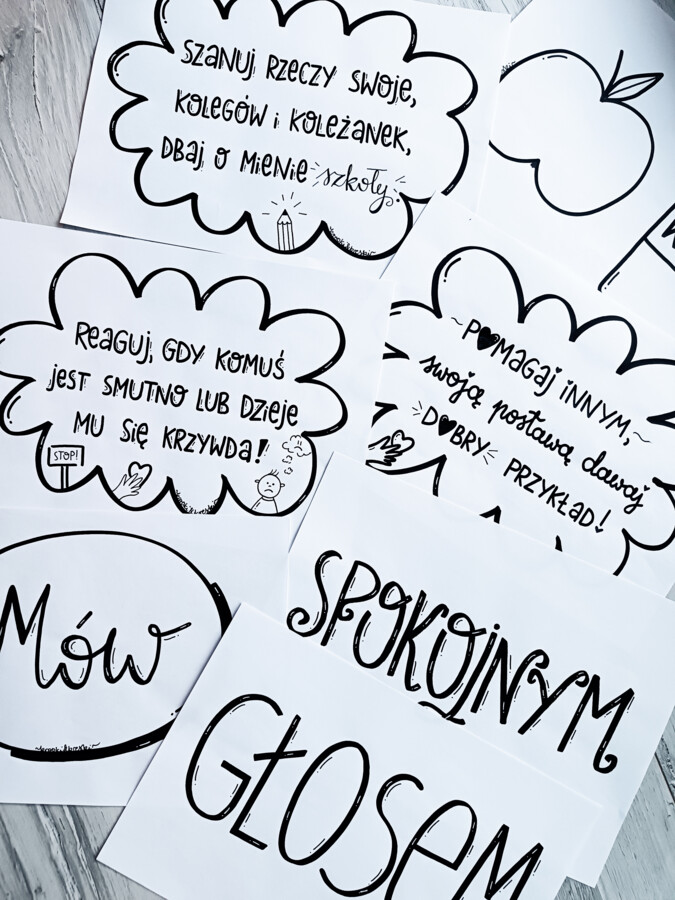 SZANUJ RZECZY SWOJE,
KOLEGÓW i KOLEŻANEK,
DBAJ O MIENIE szkoły.
REAGUJ, GDY KOMUŚ
JEST SMUTNO LUB DZIEJE
MU SIĘ KRZYWDA!
STOP!
~POMAGAJ INNYM,~
swoją postawą dawaj
DOBRY PRZYKŁAD!
Mów
SPOKOJNYM
GŁOSEM